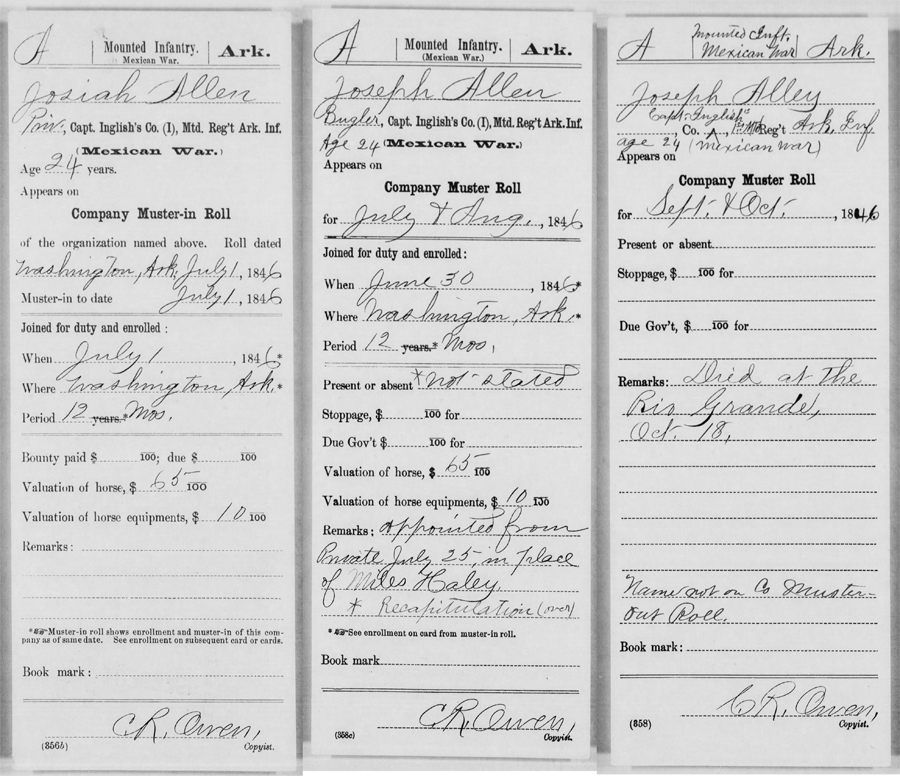 A | Mounted Infantry. | Ark.
Mexican War.
Josiah Allen
Priv., Capt. Inglish's Co. (I), Mtd. Reg't Ark. Inf.
(Mexican War.)
Age 24 years.
Appears on
Company Muster-in Roll
of the organization named above. Roll dated
Washington, Ark. July 1, 1846
Muster-in to date July 1, 1846
Joined for duty and enrolled:
When July 1, 1846*
Where Washington, Ark.*
Period 12 years.* Mos.
Bounty paid $ 100; due $ 100
Valuation of horse, $ 65 100
Valuation of horse equipments, $ 10 100
Remarks:
*Muster-in roll shows enrollment and muster-in of this com-
pany as of same date. See enrollment on subsequent card or cards.
Book mark:
C.R. Owen,
(356b) Copyist.
A | Mounted Infantry. | Ark.
(Mexican War.)
Joseph Allen
Bugler, Capt. Inglish's Co. (I), Mtd. Reg't Ark. Inf.
Age 24 (Mexican War.)
Appears on
Company Muster Roll
for July & Aug., 1846
Joined for duty and enrolled:
When June 30, 1846*
Where Washington, Ark.*
Period 12 years.* Mos.
Present or absent * not stated
Stoppage, $ 100 for
Due Gov't $ 100 for
Valuation of horse, $ 65 100
Valuation of horse equipments, $ 10 100
Remarks: Appointed from
Private July 25, in place
of Miles Haley.
* Recapitulation (over)
*See enrollment on card from muster-in roll.
Book mark
C.R. Owen,
(358c) Copyist.
A | Mounted Inft. | Ark.
Mexican War
Joseph Alley
Capt. Inglish's
, Co. , 1st Mtd Reg't Ark. Inf
age 24 (Mexican War)
Appears on
Company Muster Roll
for Sept. & Oct., 1846
Present or absent
Stoppage, $ 100 for
Due Gov't, $ 100 for
Remarks: Died at the
Rio Grande,
Oct. 18,
Name not on Co Muster-
out Roll.
Book mark:
C.R. Owen,
(358) Copyist.